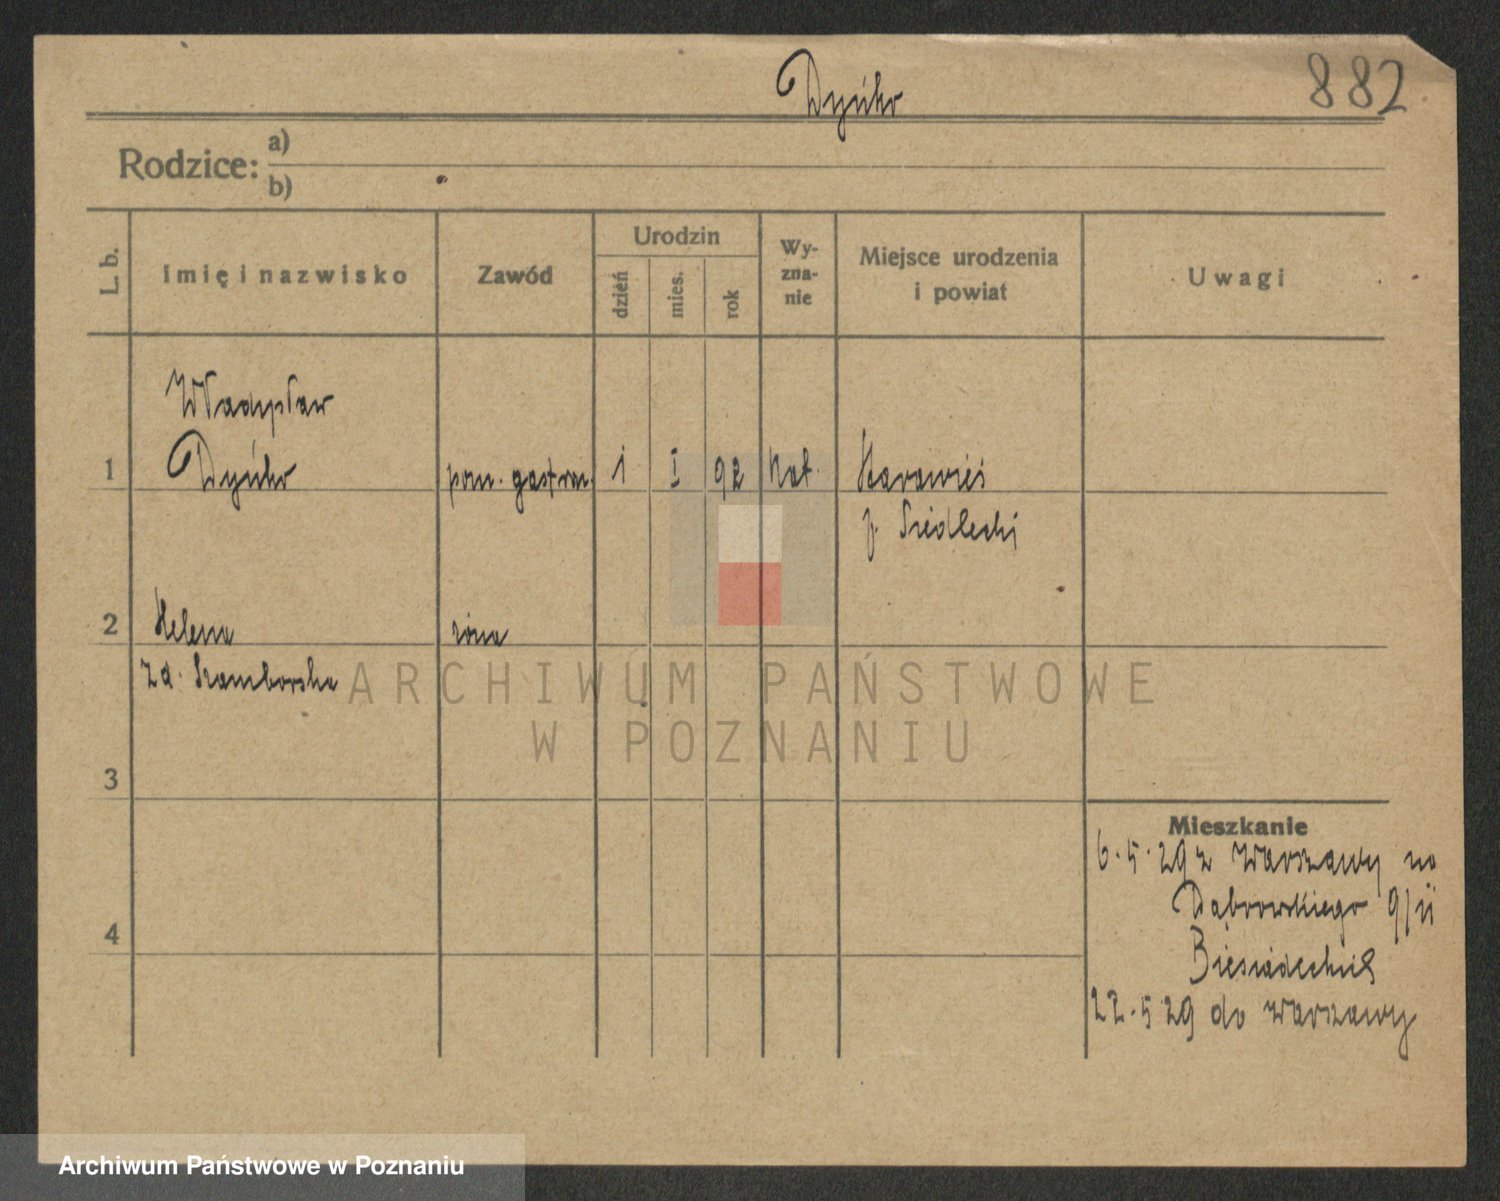 Dyńko
882
Rodzice: a)
b)
L. b.
Imię i nazwisko
Zawód
Urodzin
dzień
mies.
rok
Wy-
zna-
nie
Miejsce urodzenia
i powiat
Uwagi
Władysław
1 Dyńko pom. gastron. 1 I 92 kat. Starawieś
p. Siedlecki
2 Helena żona
zd. Szamborska
ARCHIWUM PAŃSTWOWE
W POZNANIU
3
Mieszkanie
6.5.29 z Warszawy na
Dąbrowskiego 9/II
4
22.5 29 do Warszawy
Archiwum Państwowe w Poznaniu